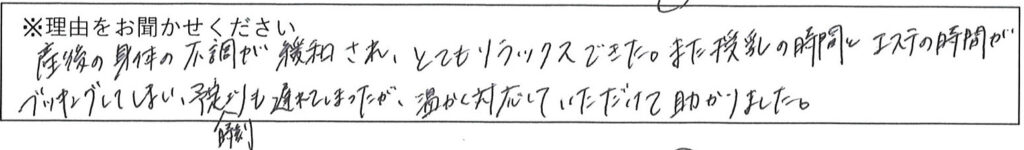 ※理由をお聞かせください
産後の身体の不調が緩和され、とてもリラックスできた。また授乳の時間とエステの時間が
ブッキングしてしまい、予定時刻よりも遅れてしまったが、温かく対応していただけて助かりました。